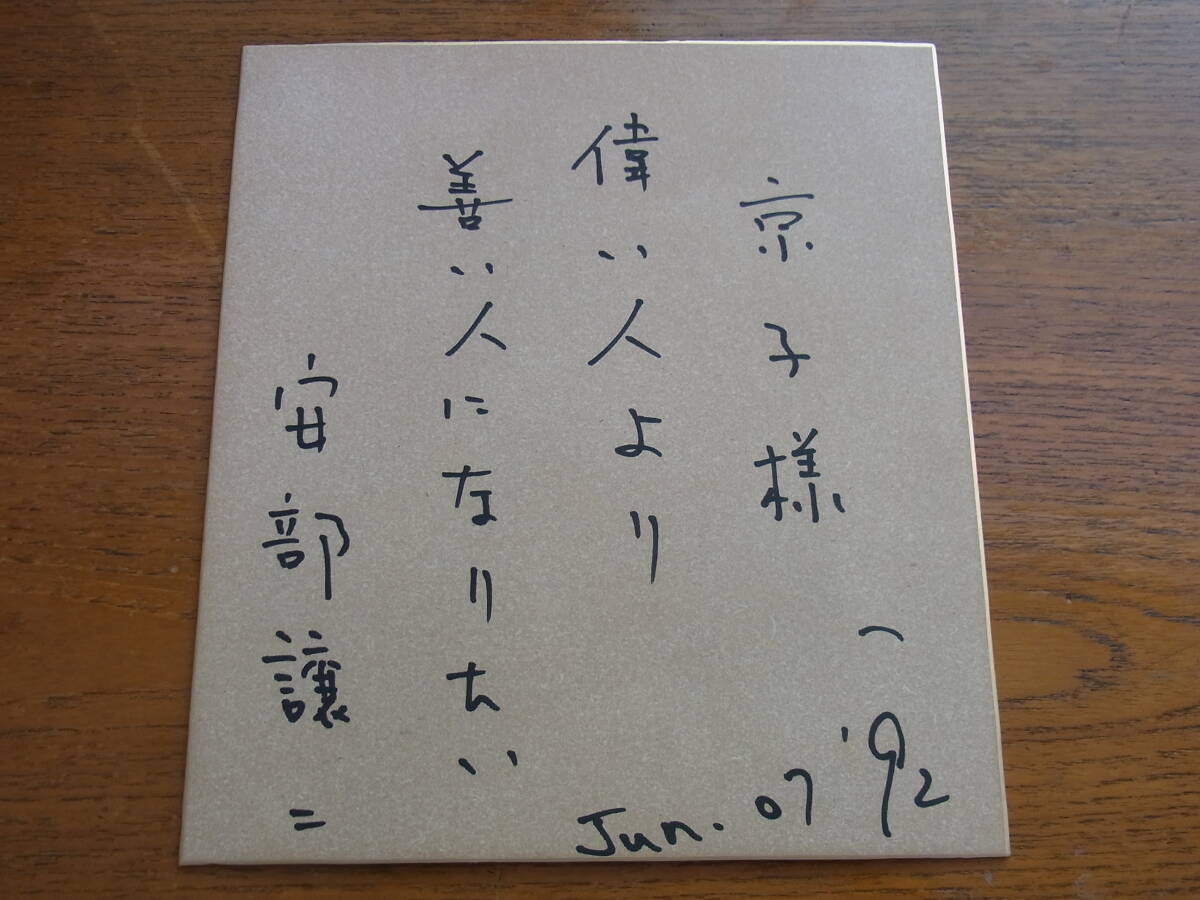 京子様へ
偉い人より
善い人になりたい
安部譲二
Jun. 07 '92